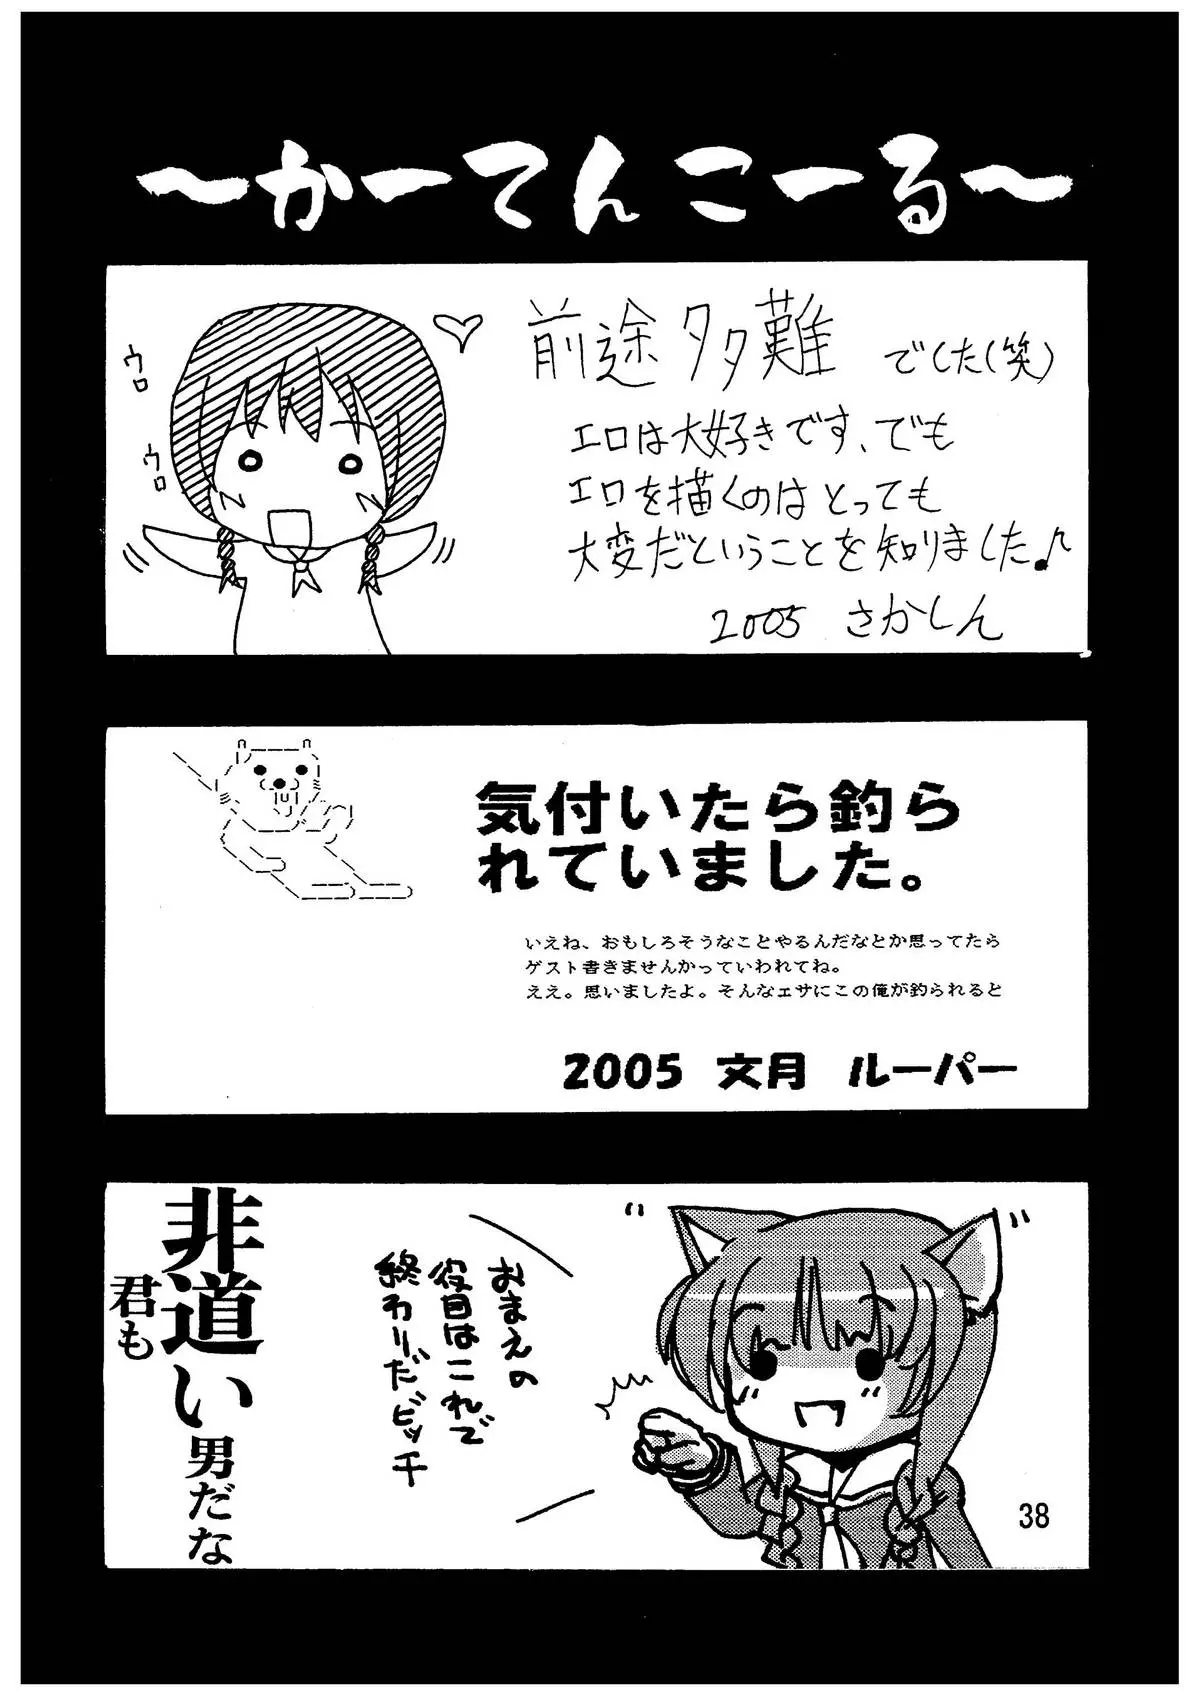 ～かーてんこーる～
ウロ
ウロ
前途多難でした(笑)
エロは大好きです、でも
エロを描くのはとっても
大変だということを知りました♪
2005 さかしん
気付いたら釣ら
れていました。
いえね、おもしろそうなことやるんだなとか思ってたら
ゲスト書きませんかっていわれてね。
ええ。思いましたよ。そんなエサにこの俺が釣られると
2005 文月 ルーパー
おまえの
役目はこれで
終わりだビッチ
非道い男だな
君も
38